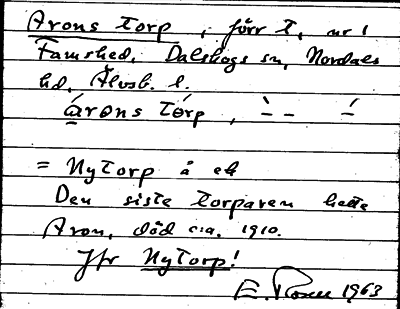 Arons torp, förr t, nr 1
Famshed, Dalskogs sn, Nordals
hd, Älvsb. l.
árons tòrp, `– – –´
= Nytorp å ek
Den siste torparen hette
Aron, död c:a, 1910.
Jfr Nytorp!
E. Rosell 1963